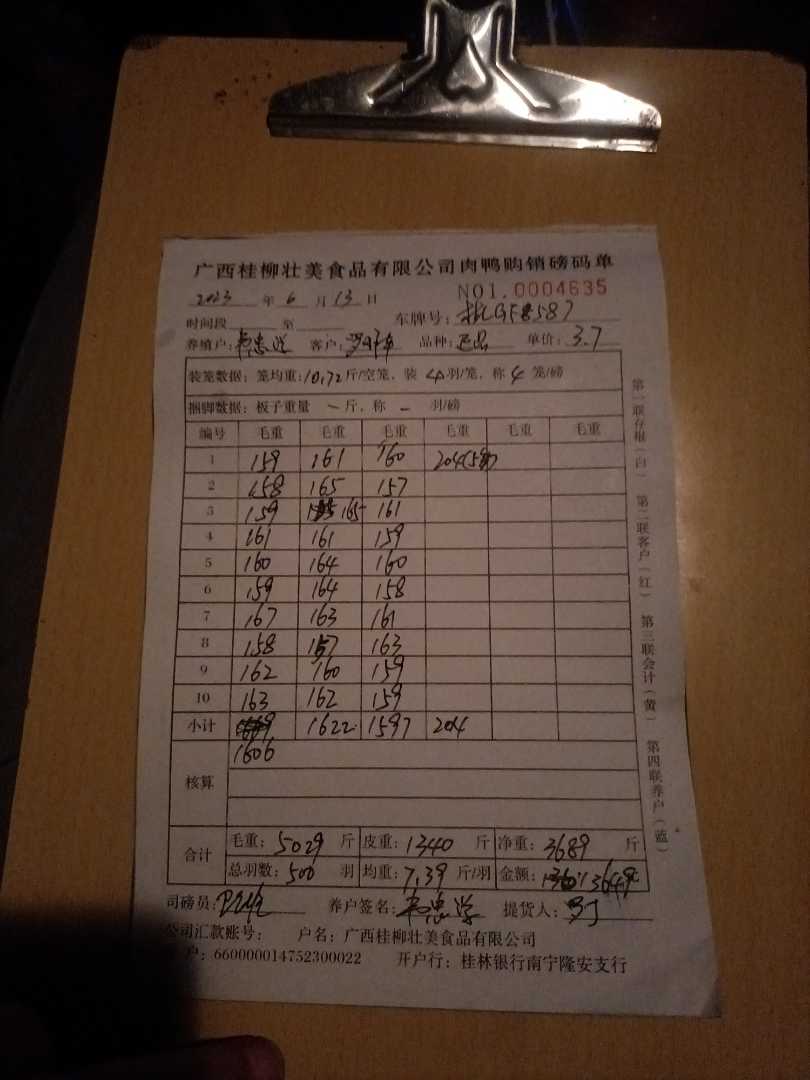 广西桂柳壮美食品有限公司肉鸭购销磅码单
2023 年 6 月 13 日 NO1.0004635
时间段 至 车牌号: 桂GF8587
养殖户: 韦忠学 客户: 品种: 正品 单价: 3.7
装笼数据: 笼均重: 10.72 斤/空笼、装 4 羽/笼, 称 4 笼/磅
捆脚数据: 板子重量 - 斤, 称 - 羽/磅
编号 毛重 毛重 毛重 毛重 毛重 毛重
1 159 161 160 204(5)
2 158 165 157
3 159 165 161
4 161 161 159
5 160 164 160
6 159 164 158
7 167 163 161
8 158 157 163
9 162 160 159
10 163 162 159
小计 1622 1597 204
核算 1606
合计 毛重: 5029 斤 皮重: 1340 斤 净重: 3689 斤
总羽数: 500 羽 均重: 7.39 斤/羽 金额: 13649
司磅员: 养户签名: 韦忠学 提货人:
公司汇款账号: 户名: 广西桂柳壮美食品有限公司
户: 660000014752300022 开户行: 桂林银行南宁隆安支行
第一联存根(白) 第二联客户(红) 第三联会计(黄) 第四联养户(蓝)